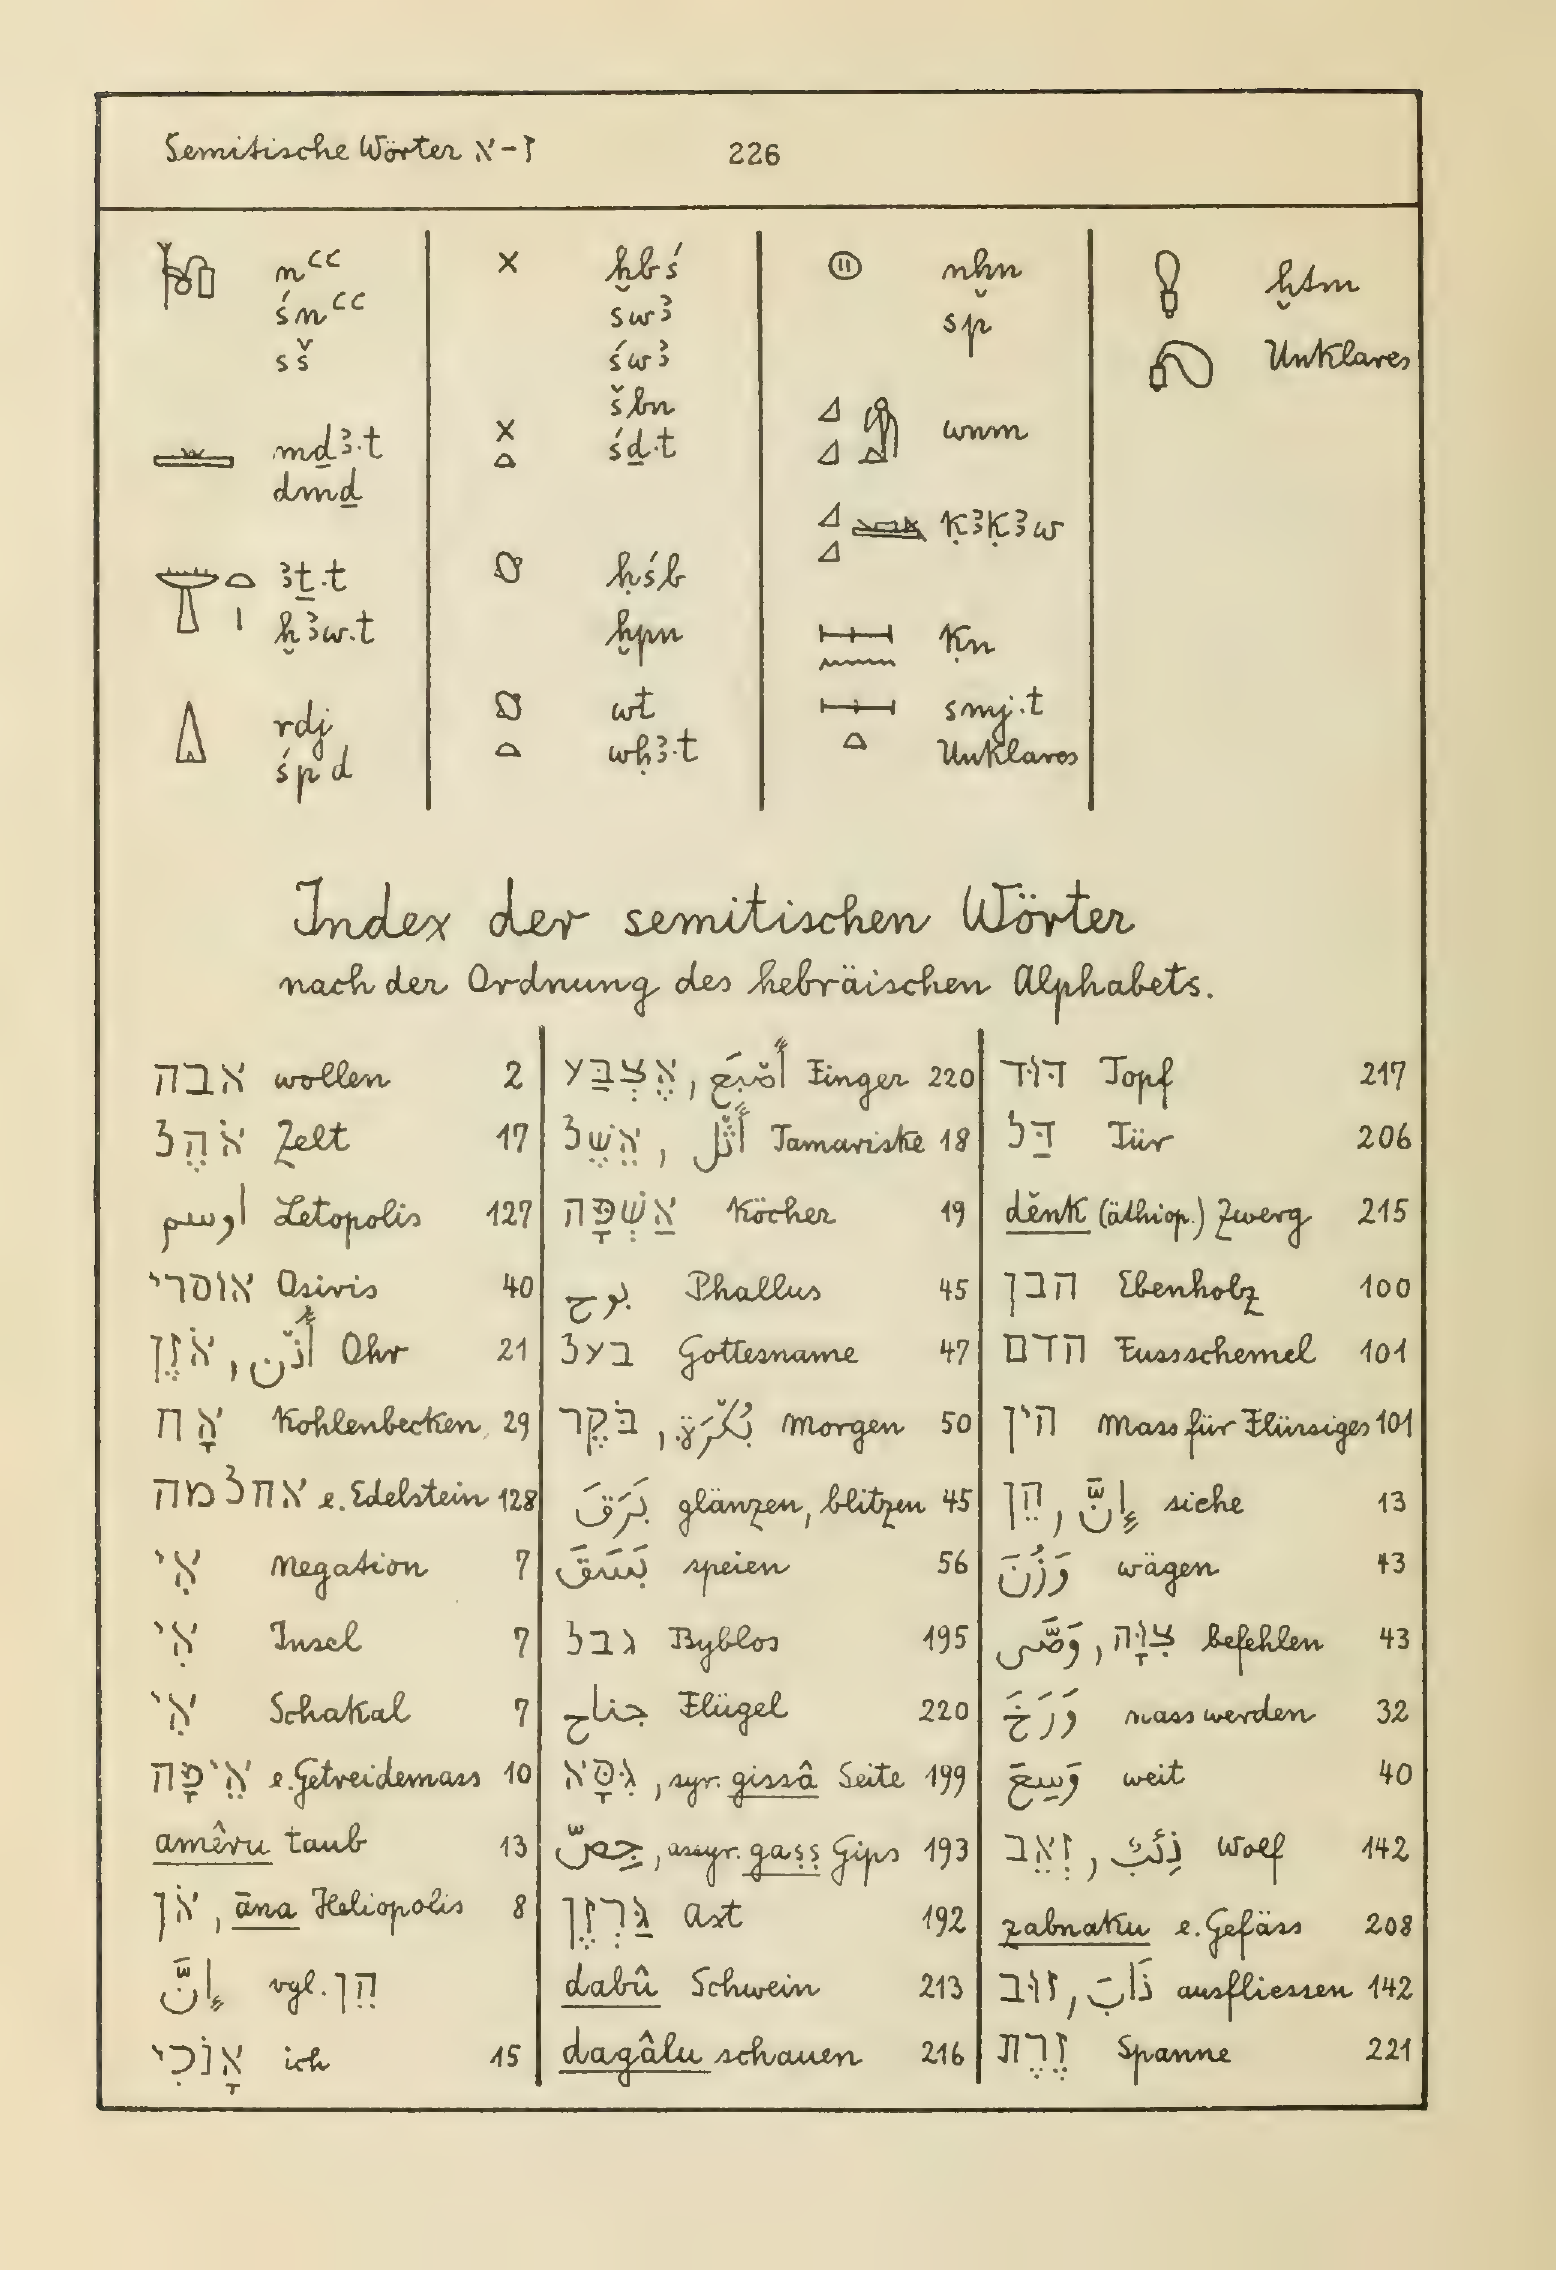 Semitische Wörter א-ז
226
nꜥꜥ
śnꜥꜥ
sš
mḏꜣ.t
dmḏ
ꜣṯ.t
ḫꜣw.t
rdj
śpd
ḫbś
swꜣ
śwꜣ
šbn
śḏ.t
ḥśb
ḫpn
wt
wḥꜣ.t
nḫn
sp
wnm
ḳꜣḳꜣw
ḳn
smj.t
Unklares
ḫtm
Unklares
Index der semitischen Wörter
nach der Ordnung des hebräischen Alphabets.
אבה wollen 2
אֹהֶל Zelt 17
اوسم Letopolis 127
אוסרי Osiris 40
אֹזֶן, أُذْن Ohr 21
אָח Kohlenbecken 29
אחלמה e. Edelstein 128
אִי Negation 7
אִי Insel 7
אִי Schakal 7
אֵיפָּה e. Getreidemass 10
amêru taub 13
אֹן, āna Heliopolis 8
إِنَّ vgl. הֵן
אָנֹכִי ich 15
אֶצְבַּע, أُصْبَع Finger 220
אֵשֶׁל, أَثْل Tamariske 18
אַשְׁפָּה Köcher 19
بوح Phallus 45
בעל Gottesname 47
בֹּקֶר, بُكْرَة Morgen 50
بَرَقَ glänzen, blitzen 45
بَسَقَ speien 56
גבל Byblos 195
جناح Flügel 220
גִּסָּא, syr. gissâ Seite 199
جِصّ, assyr. gaṣṣ Gips 193
גַּרְזֶן Axt 192
dabû Schwein 213
dagâlu schauen 216
דּוּד Topf 217
דַּל Tür 206
děnk (äthiop.) Zwerg 215
הבן Ebenholz 100
הדם Fussschemel 101
הין Mass für Flüssiges 101
הֵן, إِنَّ siehe 13
وَزُنَ wägen 43
צִוָּה, وَصَّى befehlen 43
وَرَخَ nass werden 32
وَسِعَ weit 40
זְאֵב, ذِئْب Wolf 142
zabnaku e. Gefäss 208
זוּב, ذَابَ ausfliessen 142
זֶרֶת Spanne 221